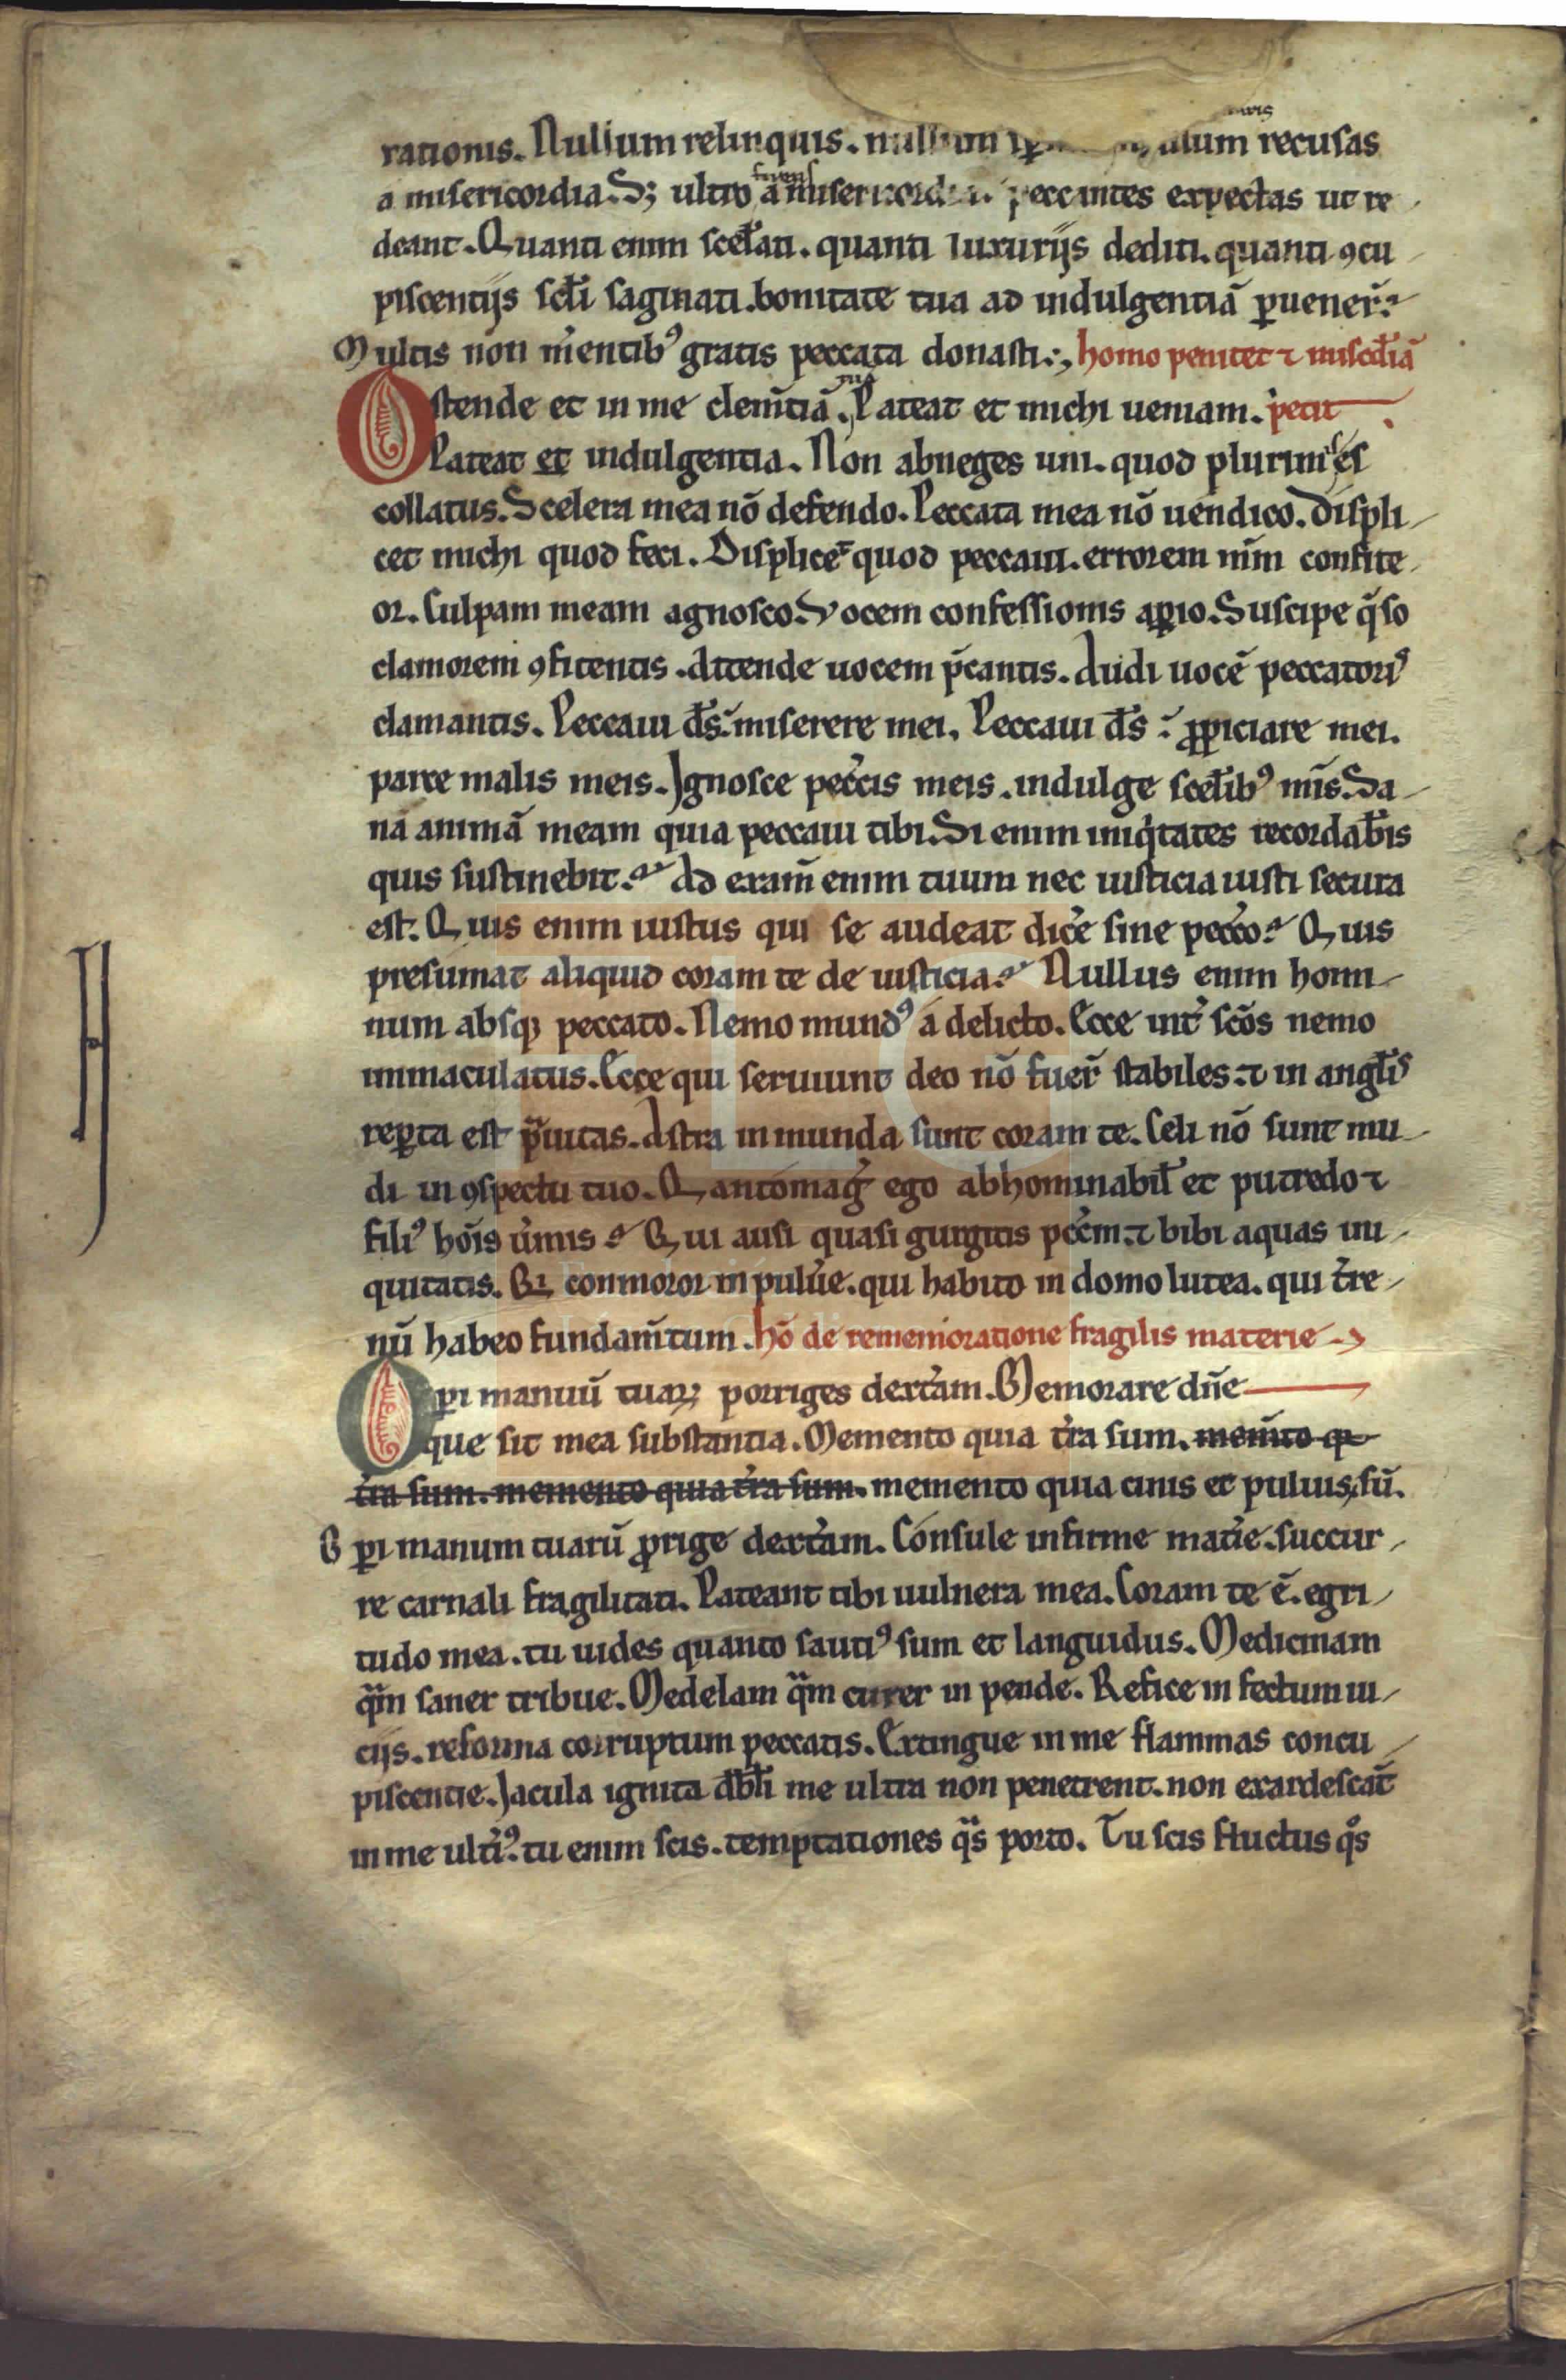 rationis. Nullum relinquis. nullum recusas
a misericordia. Sꝫ ultro a misericordia peccantes expectas ut re
deant. Quanti enim scel̄ati. quanti luxurijs dediti. quanti ꝯcu
piscentijs scl̄i saginati. bonitate tua ad indulgentiā ꝑuener̄.
Multis non m̓entibꝰ gratis peccata donasti. homo penitet ⁊ misc̄diā
Ostende et in me clem̄tiā tuā. Pateat et michi ueniam. petit
Pateat et indulgentia. Non abneges uni. quod plurimis es
collatus. Scelera mea nō defendo. Peccata mea nō uendico. Displi
cet michi quod feci. Displicet quod peccaui. errorem mm̄ confite
or. Culpam meam agnosco. Vocem confessionis aꝑio. Suscipe q̄so
clamorem ꝯfitentis. Attende uocem p̄cantis. Audi uocē peccatoris
clamantis. Peccaui ds̄. miserere mei. Peccaui ds̄. ꝓpiciare mei.
parce malis meis. Ignosce pecc̄is meis. indulge scel̄ibꝰ mīs. Sa
na animā meam quia peccaui tibi. Si enim iniq̇tates recordab̄is
quis sustinebit. Ad exam̄ enim tuum nec iusticia iusti secura
est. Quis enim iustus qui se audeat dic̓e sine pecc̄o. Quis
presumat aliquid coram te de iusticia. Nullus enim homi
num absqꝫ peccato. Nemo mundꝰ a delicto. Ecce int̓ scōs nemo
immaculatus. Ecce qui seruiunt deo nō fuer̄ stabiles. ⁊ in angl̄is
reꝑta est prauitas. Astra inmunda sunt coram te. Celi nō sunt mu
di in ꝯspectu tuo. Qantomag̓ ego abhominabil̄ et putredo ⁊
filiꝰ hōis u̓mis. Qui ausi quasi gurgitis pecc̄m. ⁊ bibi aquas ini
quitatis. Qi conmoror in pulu̓e. qui habito in domo lutea. qui t̓re
nū habeo fundam̄tum. hō de rememoratione fragilis materie
Oꝑi manuū tuaꝝ porriges dext̓am. Memorare dn̄e
que sit mea substantia. Memento quia t̓ra sum. mem̄to q
t̓ra sum. memento quia t̓ra sum. memento quia cinis et puluis sū.
Oꝑi manum tuarū ꝓrige dext̓am. Consule infirme mat̓ie. succur
re carnali fragilitati. Pateant tibi uulnera mea. Coram te ē. egri
tudo mea. tu uides quanto sautiꝰ sum et languidus. Medicinam
qᵃm saner tribue. Medelam qᵃm curer in pende. Refice in fectum ui
cijs. reforma corruptum peccatis. Extingue in me flammas concu
piscentie. Iacula ignita dbl̄i me ultra non penetrent. non exardescāt
in me ult̓iꝰ. tu enim scis. temptationes qᵃs porto. Tu scis fluctus qͦs